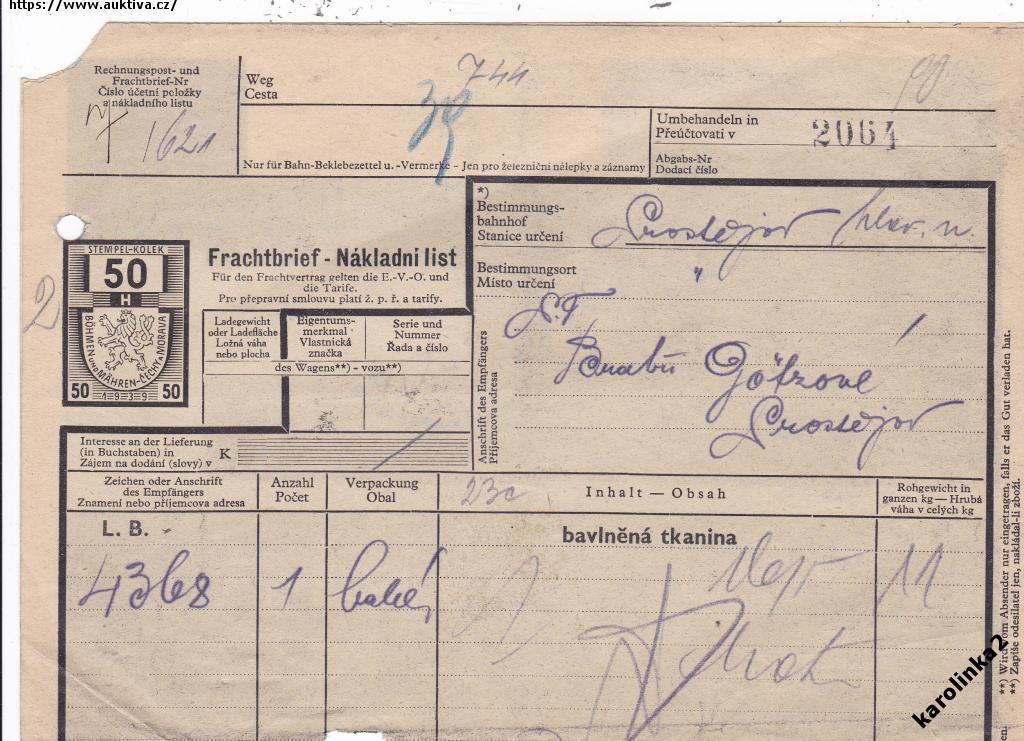 https://www.auktiva.cz/
Rechnungspost- und
Frachtbrief-Nr
Číslo účetní položky
a nákladního listu
1621
Weg
Cesta
744
90
Nur für Bahn-Beklebezettel u. -Vermerke - Jen pro železniční nálepky a záznamy
Umbehandeln in
Přeúčtovati v
2064
Abgabs-Nr
Dodací číslo
*)
Bestimmungs-
bahnhof
Stanice určení
Prostějov hlav. n.
Bestimmungsort
Místo určení
"
Anschrift des Empfängers
Příjemcova adresa
N.F
Bratří Götzové
Prostějov
2
STEMPEL-KOLEK
50
H
BÖHMEN und MÄHREN-ČECHY A MORAVA
50 1939 50
Frachtbrief - Nákladní list
Für den Frachtvertrag gelten die E.-V.-O. und
die Tarife.
Pro přepravní smlouvu platí ž. p. ř. a tarify.
Ladegewicht
oder Ladefläche
Ložná váha
nebo plocha
Eigentums-
merkmal
Vlastnická
značka
Serie und
Nummer
Řada a číslo
des Wagens**) - vozu**)
Interesse an der Lieferung
(in Buchstaben) in
Zájem na dodání (slovy) v
K
Zeichen oder Anschrift
des Empfängers
Znamení nebo příjemcova adresa
Anzahl
Počet
Verpackung
Obal
23c
Inhalt — Obsah
Rohgewicht in
ganzen kg — Hrubá
váha v celých kg
L. B.
bavlněná tkanina
4368
1
11
**) Wird vom Absender nur eingetragen, falls er das Gut verladen hat.
**) Zapíše odesilatel jen, nakládal-li zboží.
karolinka2